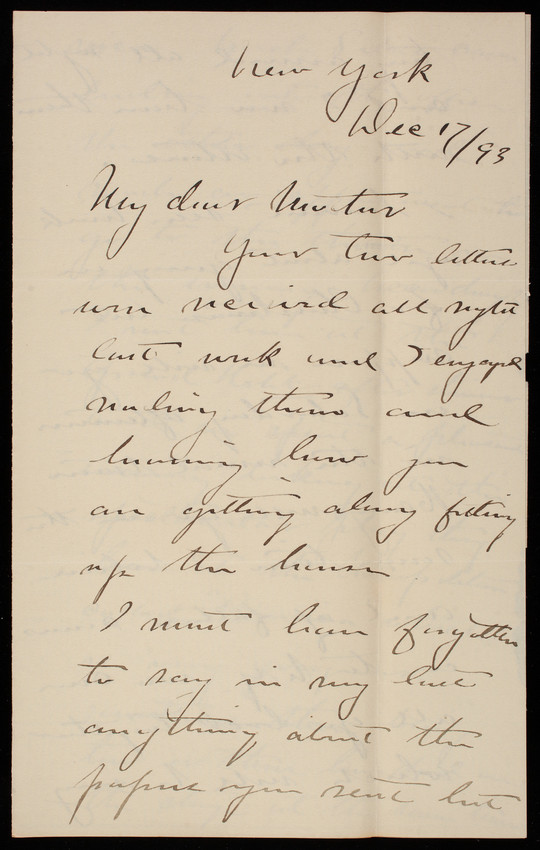 New York
Dec 17/93
My dear Mother
Your two letters
were received all right
last week and I enjoyed
reading them and
knowing how you
are getting along fixing
up the house
I must have forgotten
to say in my last
anything about the
papers you sent but